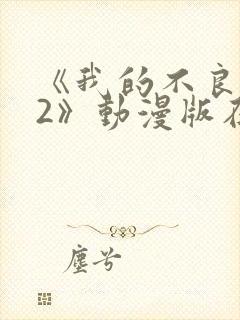 《我的不良
2》動漫版在
塵兮